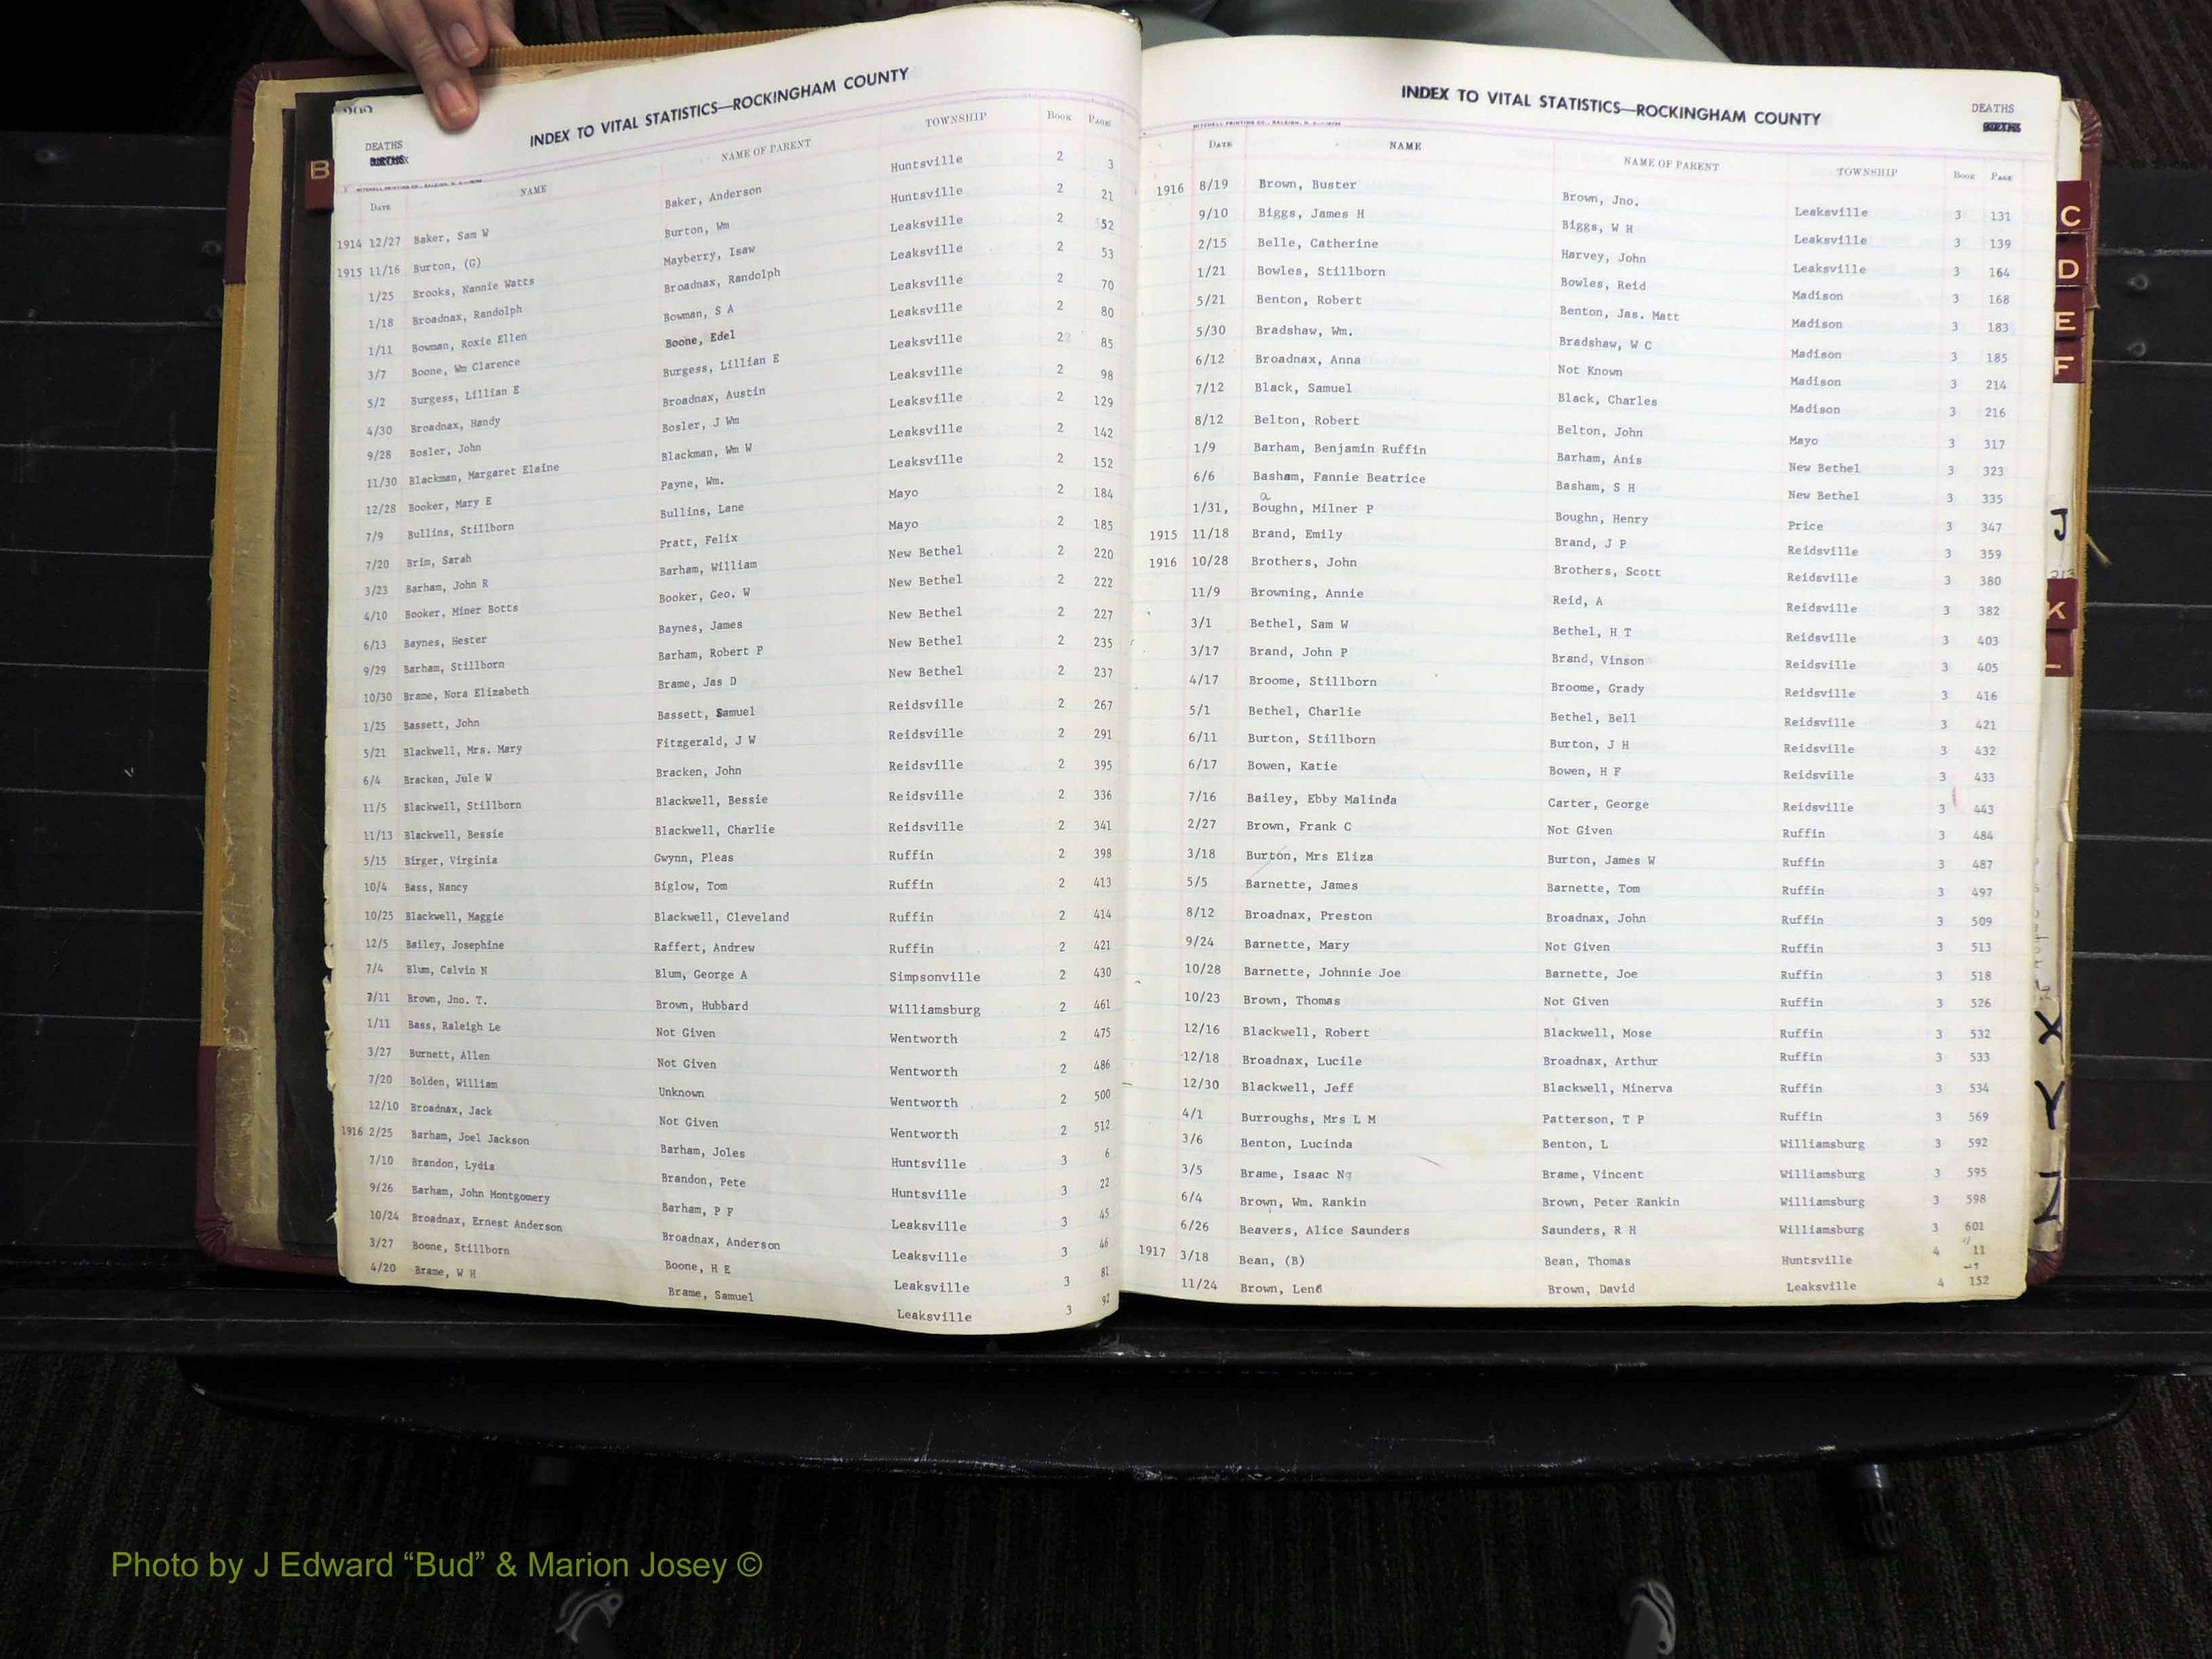 DEATHS
INDEX TO VITAL STATISTICS—ROCKINGHAM COUNTY
MITCHELL PRINTING CO., RALEIGH, N. C.
DATE NAME NAME OF PARENT TOWNSHIP BOOK PAGE
1914 12/27 Baker, Sam W Baker, Anderson Huntsville 2 3
1915 11/16 Burton, (G) Burton, Wm Huntsville 2 21
1/25 Brooks, Nannie Watts Mayberry, Isaw Leaksville 2 52
1/18 Broadnax, Randolph Broadnax, Randolph Leaksville 2 53
1/11 Bowman, Roxie Ellen Bowman, S A Leaksville 2 70
3/7 Boone, Wm Clarence Boone, Edel Leaksville 2 80
5/2 Burgess, Lillian E Burgess, Lillian E Leaksville 22 85
4/30 Broadnax, Handy Broadnax, Austin Leaksville 2 98
9/28 Bosler, John Bosler, J Wm Leaksville 2 129
11/30 Blackman, Margaret Elaine Blackman, Wm W Leaksville 2 142
12/28 Booker, Mary E Payne, Wm. Leaksville 2 152
7/9 Bullins, Stillborn Bullins, Lane Mayo 2 184
7/20 Brim, Sarah Pratt, Felix Mayo 2 185
3/23 Barham, John R Barham, William New Bethel 2 220
4/10 Booker, Miner Botts Booker, Geo. W New Bethel 2 222
6/13 Baynes, Hester Baynes, James New Bethel 2 227
9/29 Barham, Stillborn Barham, Robert P New Bethel 2 235
10/30 Brame, Nora Elizabeth Brame, Jas D New Bethel 2 237
1/25 Bassett, John Bassett, Samuel Reidsville 2 267
5/21 Blackwell, Mrs. Mary Fitzgerald, J W Reidsville 2 291
6/4 Bracken, Jule W Bracken, John Reidsville 2 395
11/5 Blackwell, Stillborn Blackwell, Bessie Reidsville 2 336
11/13 Blackwell, Bessie Blackwell, Charlie Reidsville 2 341
5/15 Birger, Virginia Gwynn, Pleas Ruffin 2 398
10/4 Bass, Nancy Biglow, Tom Ruffin 2 413
10/25 Blackwell, Maggie Blackwell, Cleveland Ruffin 2 414
12/5 Bailey, Josephine Raffert, Andrew Ruffin 2 421
7/4 Blum, Calvin N Blum, George A Simpsonville 2 430
7/11 Brown, Jno. T. Brown, Hubbard Williamsburg 2 461
1/11 Bass, Raleigh Le Not Given Wentworth 2 475
3/27 Burnett, Allen Not Given Wentworth 2 486
7/20 Bolden, William Unknown Wentworth 2 500
12/10 Broadnax, Jack Not Given Wentworth 2 512
1916 2/25 Barham, Joel Jackson Barham, Joles Huntsville 3 6
7/10 Brandon, Lydia Brandon, Pete Huntsville 3 22
9/26 Barham, John Montgomery Barham, P F Leaksville 3 45
10/24 Broadnax, Ernest Anderson Broadnax, Anderson Leaksville 3 46
3/27 Boone, Stillborn Boone, H E Leaksville 3 81
4/20 Brame, W H Brame, Samuel Leaksville 3 92
B
INDEX TO VITAL STATISTICS—ROCKINGHAM COUNTY
DEATHS
MITCHELL PRINTING CO., RALEIGH, N. C.
DATE NAME NAME OF PARENT TOWNSHIP BOOK PAGE
1916 8/19 Brown, Buster Brown, Jno. Leaksville 3 131
9/10 Biggs, James H Biggs, W H Leaksville 3 139
2/15 Belle, Catherine Harvey, John Leaksville 3 164
1/21 Bowles, Stillborn Bowles, Reid Madison 3 168
5/21 Benton, Robert Benton, Jas. Matt Madison 3 183
5/30 Bradshaw, Wm. Bradshaw, W C Madison 3 185
6/12 Broadnax, Anna Not Known Madison 3 214
7/12 Black, Samuel Black, Charles Madison 3 216
8/12 Belton, Robert Belton, John Mayo 3 317
1/9 Barham, Benjamin Ruffin Barham, Anis New Bethel 3 323
6/6 Basham, Fannie Beatrice Basham, S H New Bethel 3 335
a
1/31, Boughn, Milner P Boughn, Henry Price 3 347
1915 11/18 Brand, Emily Brand, J P Reidsville 3 359
1916 10/28 Brothers, John Brothers, Scott Reidsville 3 380
11/9 Browning, Annie Reid, A Reidsville 3 382
3/1 Bethel, Sam W Bethel, H T Reidsville 3 403
3/17 Brand, John P Brand, Vinson Reidsville 3 405
4/17 Broome, Stillborn Broome, Grady Reidsville 3 416
5/1 Bethel, Charlie Bethel, Bell Reidsville 3 421
6/11 Burton, Stillborn Burton, J H Reidsville 3 432
6/17 Bowen, Katie Bowen, H F Reidsville 3 433
7/16 Bailey, Ebby Malinda Carter, George Reidsville 3 443
2/27 Brown, Frank C Not Given Ruffin 3 484
3/18 Burton, Mrs Eliza Burton, James W Ruffin 3 487
5/5 Barnette, James Barnette, Tom Ruffin 3 497
8/12 Broadnax, Preston Broadnax, John Ruffin 3 509
9/24 Barnette, Mary Not Given Ruffin 3 513
10/28 Barnette, Johnnie Joe Barnette, Joe Ruffin 3 518
10/23 Brown, Thomas Not Given Ruffin 3 526
12/16 Blackwell, Robert Blackwell, Mose Ruffin 3 532
12/18 Broadnax, Lucile Broadnax, Arthur Ruffin 3 533
12/30 Blackwell, Jeff Blackwell, Minerva Ruffin 3 534
4/1 Burroughs, Mrs L M Patterson, T P Ruffin 3 569
3/6 Benton, Lucinda Benton, L Williamsburg 3 592
3/5 Brame, Isaac Brame, Vincent Williamsburg 3 595
6/4 Brown, Wm. Rankin Brown, Peter Rankin Williamsburg 3 598
6/26 Beavers, Alice Saunders Saunders, R H Williamsburg 3 601
1917 3/18 Bean, (B) Bean, Thomas Huntsville 4 11
11/24 Brown, Brown, David Leaksville 4 152
C
D
E
F
J
K
X
Y
Z
Photo by J Edward “Bud” & Marion Josey ©